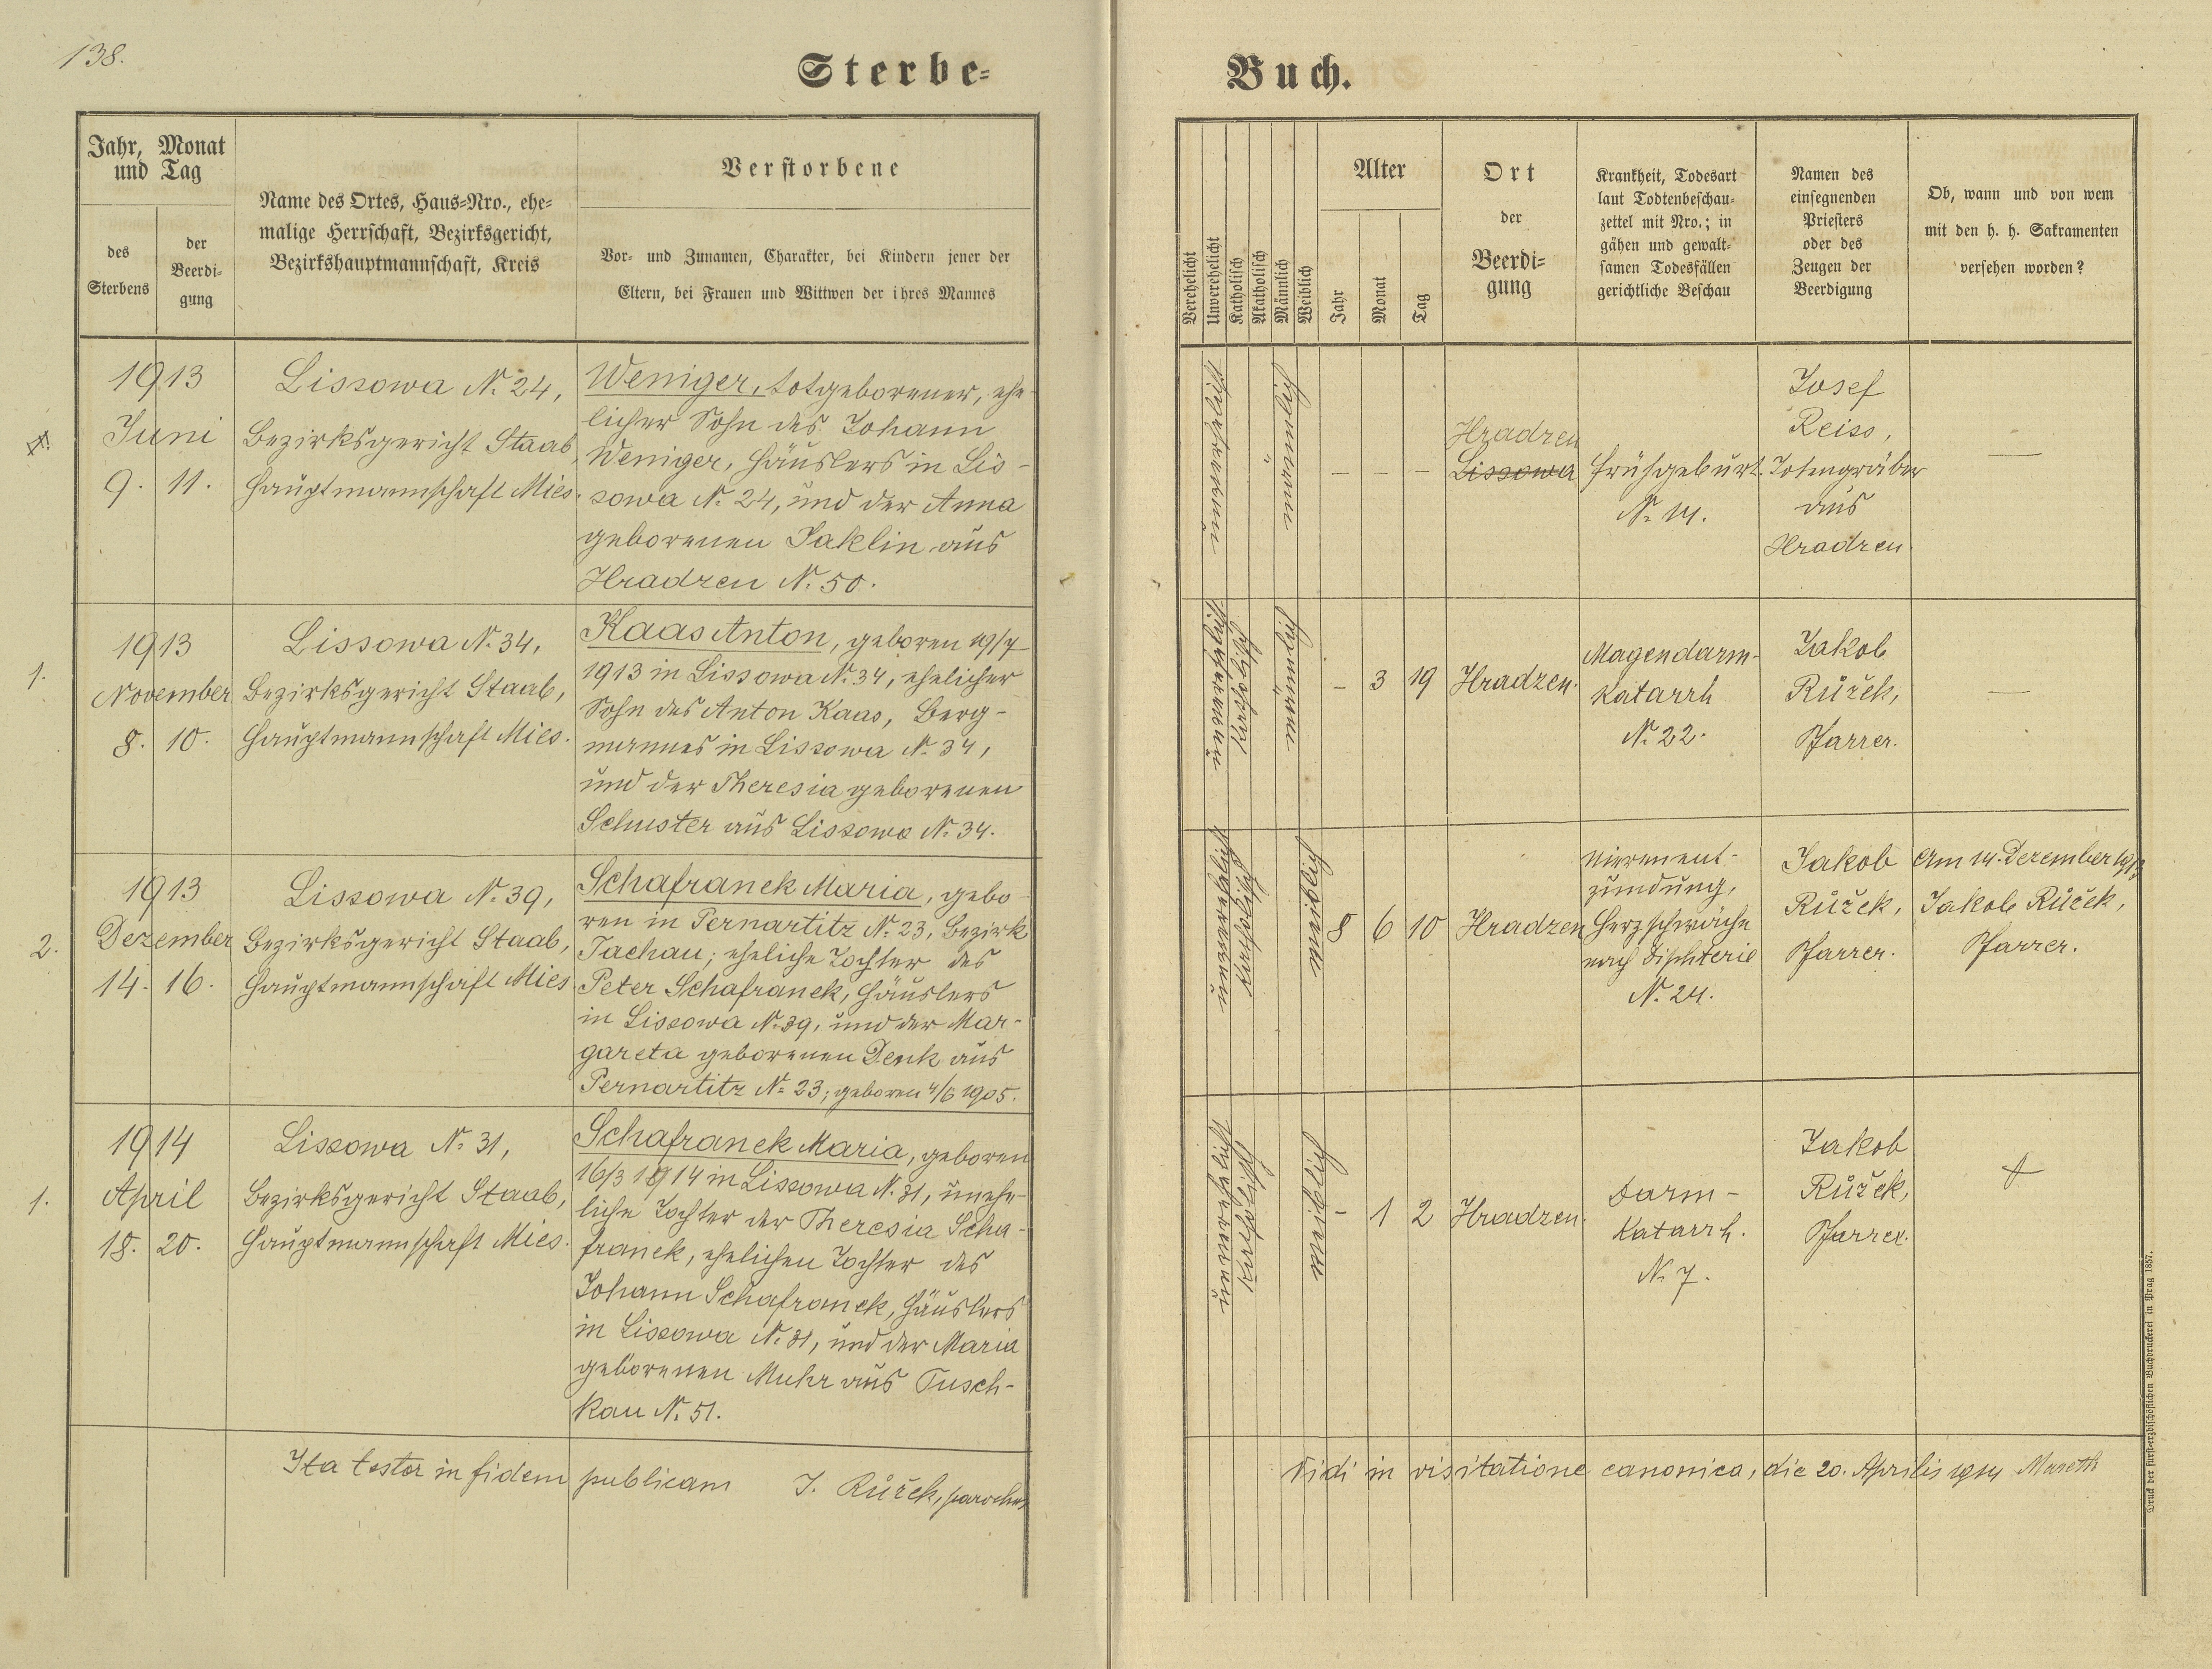 138.
Sterbe-
Buch.
Jahr, Monat
und Tag
des
Sterbens
der
Beerdi-
gung
Name des Ortes, Haus-Nro., ehe-
malige Herrschaft, Bezirksgericht,
Bezirkshauptmannschaft, Kreis
Verstorbene
Vor- und Zunamen, Charakter, bei Kindern jener der
Eltern, bei Frauen und Wittwen der ihres Mannes
Verehelicht
Unverehelicht
Katholisch
Akatholisch
Männlich
Weiblich
Alter
Jahr
Monat
Tag
Ort
der
Beerdi-
gung
Krankheit, Todesart
laut Todtenbeschau-
zettel mit Nro.; in
gähen und gewalt-
samen Todesfällen
gerichtliche Beschau
Namen des
einsegnenden
Priesters
oder des
Zeugen der
Beerdigung
Ob, wann und von wem
mit den h. h. Sakramenten
versehen worden?
1913
Juni
9. 11.
Lissowa N. 24,
Bezirksgericht Staab,
Hauptmannschaft Mies.
Weniger, totgeborener, ehe-
licher Sohn des Johann
Weniger, Häuslers in Lis-
sowa N. 24, und der Anna
geborenen Jaklin aus
Hradzen N. 50.
unverehelicht
männlich
– – –
Hradzen
Lissowa
Frühgeburt.
N. 14.
Josef
Reiss,
Totengräber
aus
Hradzen.
—
1.
1913
November
8. 10.
Lissowa N. 34,
Bezirksgericht Staab,
Hauptmannschaft Mies.
Kaas Anton, geboren 19/7
1913 in Lissowa N. 34, ehelicher
Sohn des Anton Kaas, Berg-
mannes in Lissowa N. 34,
und der Theresia geborenen
Schuster aus Lissowa N. 34.
unverehelicht
Katholisch
männlich
– 3 19
Hradzen.
Magendarm-
katarrh
N. 22.
Jakob
Růžek,
Pfarrer.
—
2.
1913
Dezember
14. 16.
Lissowa N. 39,
Bezirksgericht Staab,
Hauptmannschaft Mies.
Schafranek Maria, gebo-
ren in Pernartitz N. 23, Bezirk
Tachau; eheliche Tochter des
Peter Schafranek, Häuslers
in Lissowa N. 39, und der Mar-
gareta geborenen Denk aus
Pernartitz N. 23; geboren 4/6 1905.
unverehelicht
Katholisch
weiblich
8 6 10
Hradzen
Nierenent-
zündung,
Herzschwäche
nach Diphterie
N. 24.
Jakob
Růžek,
Pfarrer.
Am 14. Dezember 1913
Jakob Růžek,
Pfarrer.
1.
1914
April
18. 20.
Lissowa N. 31,
Bezirksgericht Staab,
Hauptmannschaft Mies.
Schafranek Maria, geboren
16/3 1914 in Lissowa N. 31, unehe-
liche Tochter der Theresia Scha-
franek, ehelichen Tochter des
Johann Schafranek, Häuslers
in Lissowa N. 31, und der Maria
geborenen Muhr aus Tusch-
kau N. 51.
unverehelicht
Katholisch
weiblich
– 1 2
Hradzen.
Darm-
katarrh.
N. 7.
Jakob
Růžek,
Pfarrer.
Ita testor in fidem publicam J. Růžek, parochus
Vidi in visitatione canonica, die 20. Aprilis 1914
Druck der fürst-erzbischöflichen Buchdruckerei in Prag 1857.